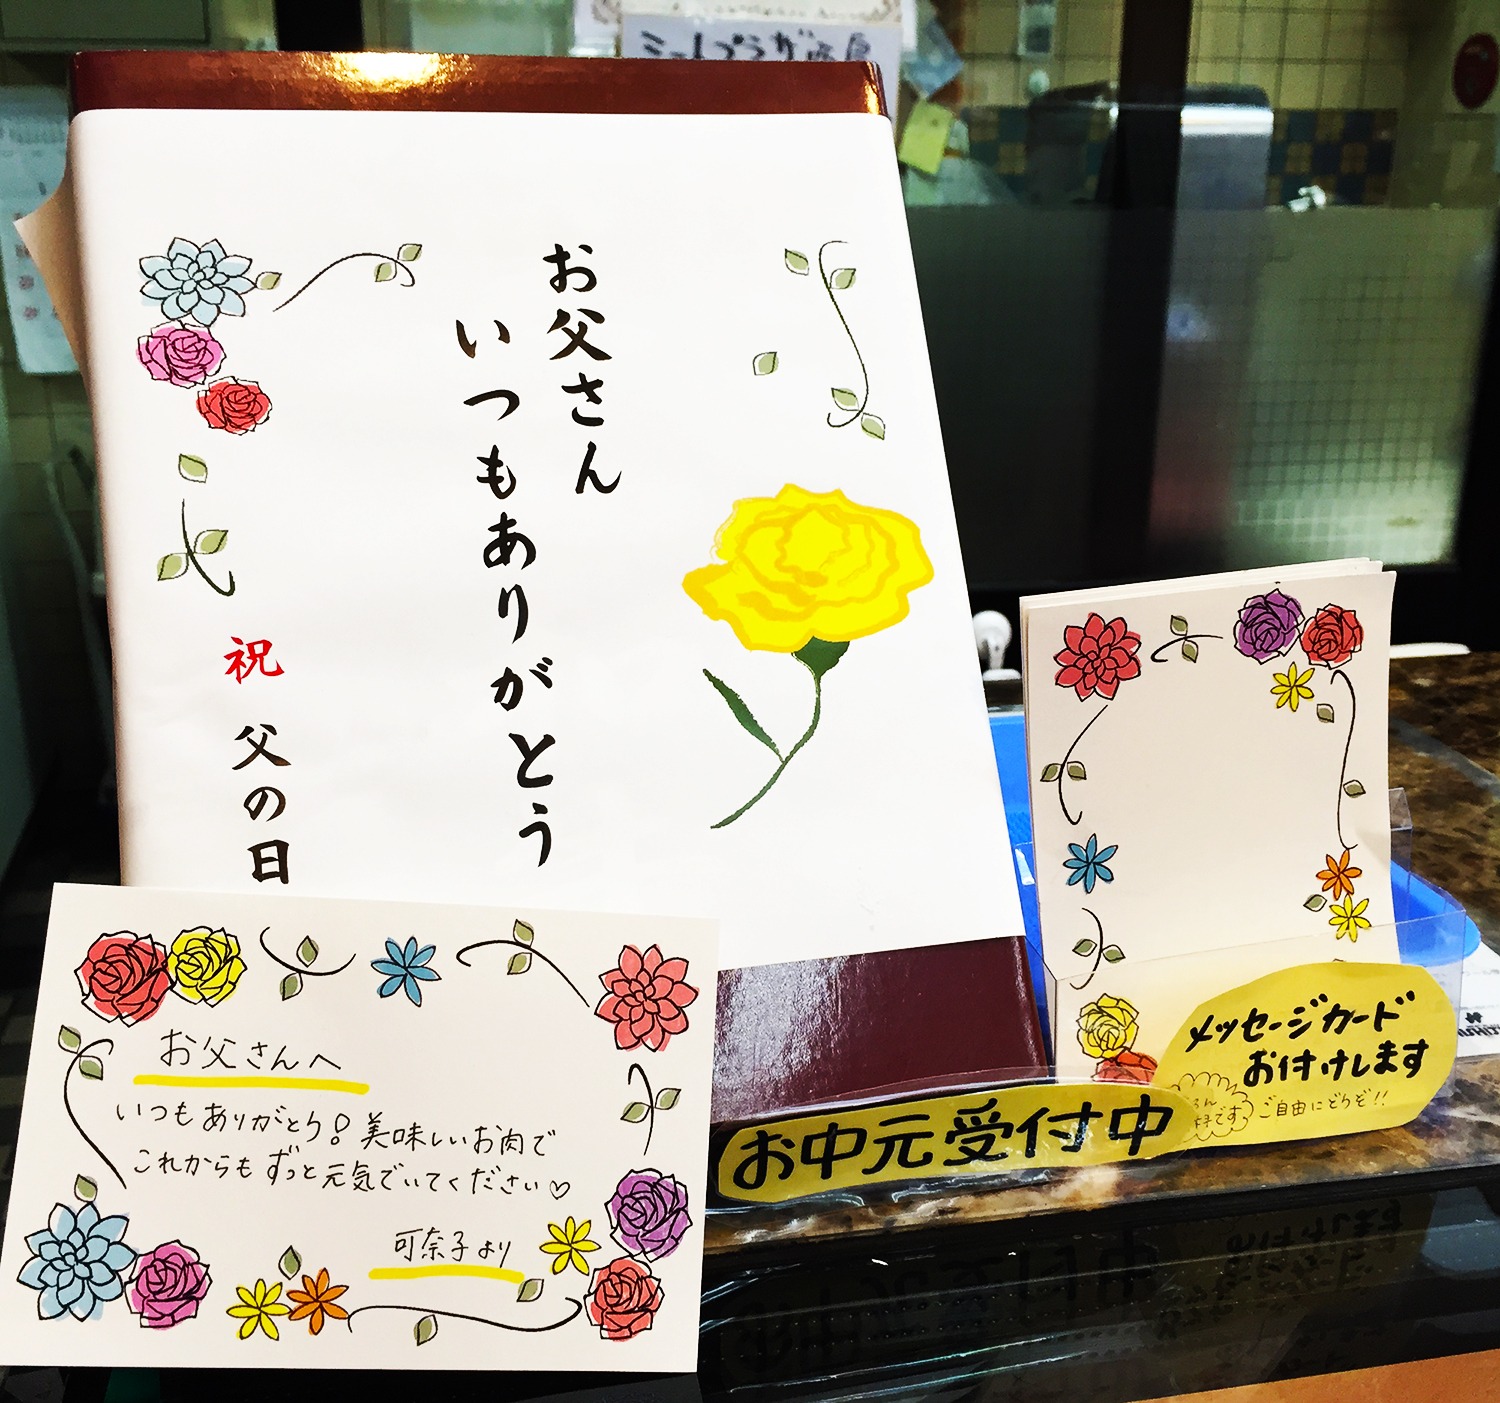 お父さん
いつもありがとう
祝 父の日
お父さんへ
いつもありがとう!美味しいお肉で
これからもずっと元気でいてください♡
可奈子より
メッセージカード
お付けします
ご自由にどうぞ!!
お中元受付中